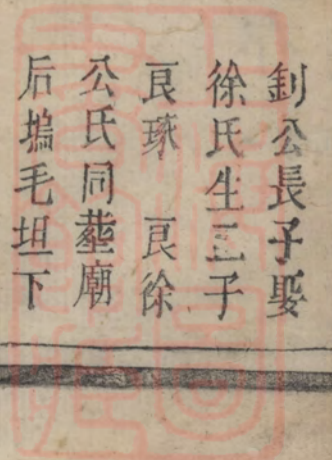 釗公長子娶
徐氏生二子
良琢 良徐
公氏同葬廟
后塢毛坦下